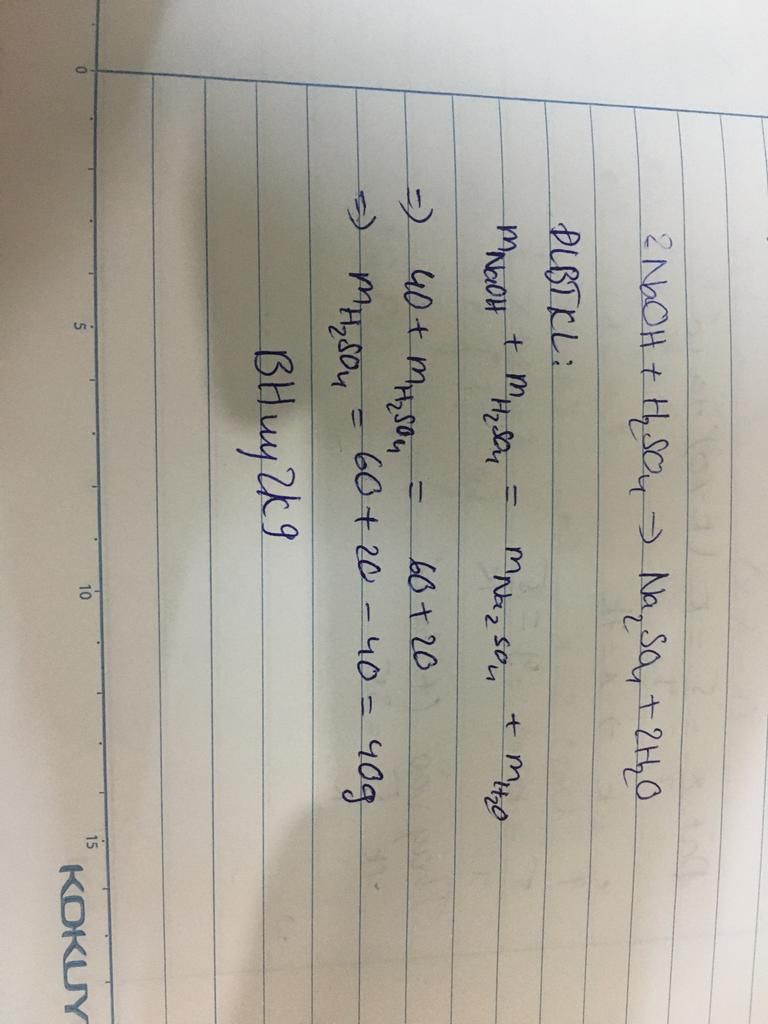 2NaOH + H₂SO₄ → Na₂SO₄ + 2H₂O
ĐLBTKL:
mNaOH + mH₂SO₄ = mNa₂SO₄ + mH₂O
=) 40 + mH₂SO₄ = 60 + 20
=) mH₂SO₄ = 60 + 20 - 40 = 40g
BHuy2k9
0 5 10 15
KOKUY